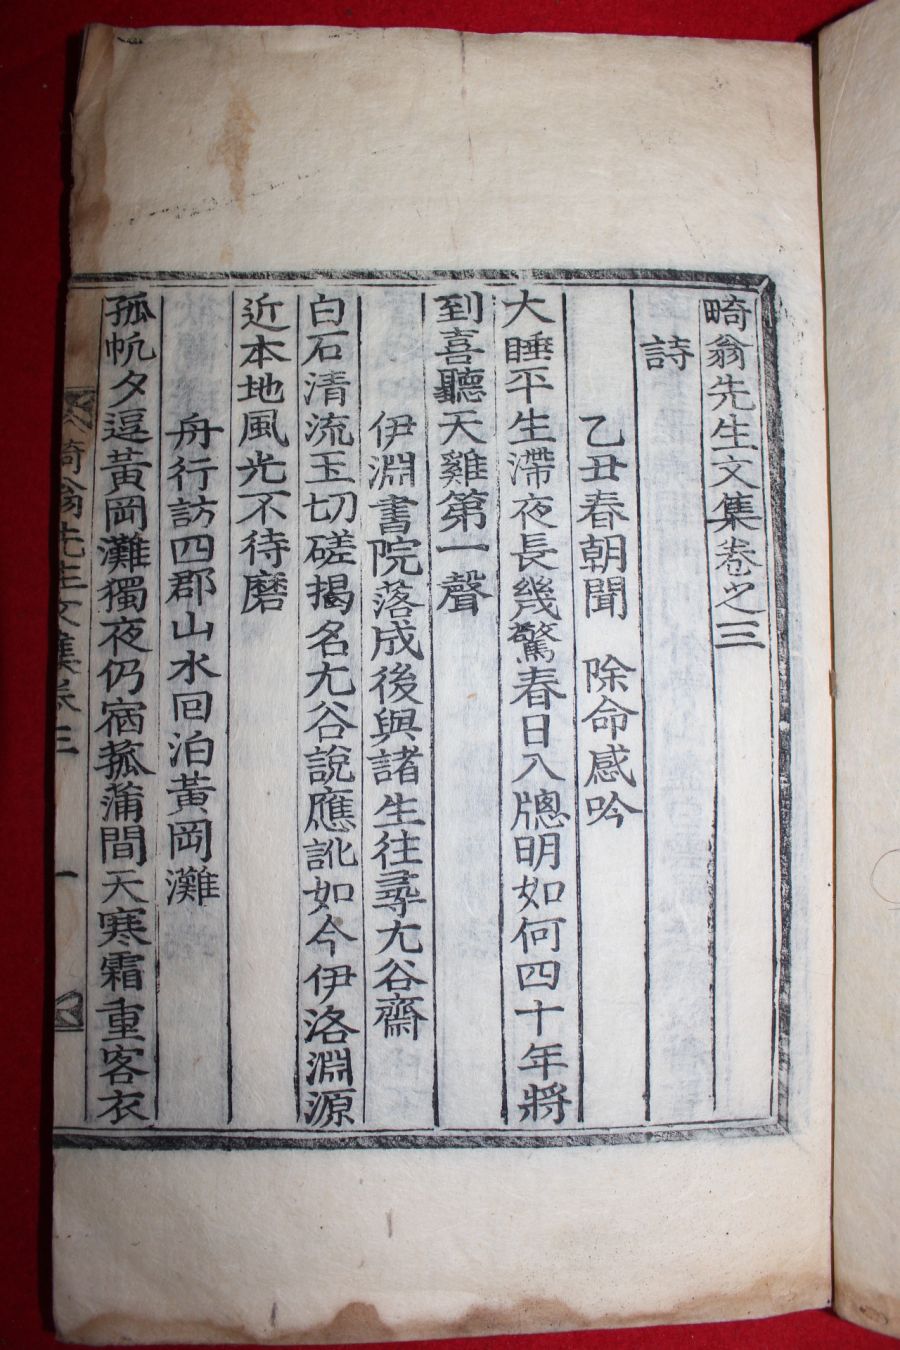 畸翁先生文集卷之三
詩
乙丑春朝聞 除命感吟
大睡平生滯夜長幾驚春日入牕明如何四十年將
到喜聽天雞第一聲
伊淵書院落成後與諸生往尋尤谷齋
白石清流玉切磋揭名尤谷說應訛如今伊洛淵源
近本地風光不待磨
舟行訪四郡山水回泊黃岡灘
孤帆夕逗黃岡灘獨夜仍宿菰蒲間天寒霜重客衣
畸翁先生文集卷三
一